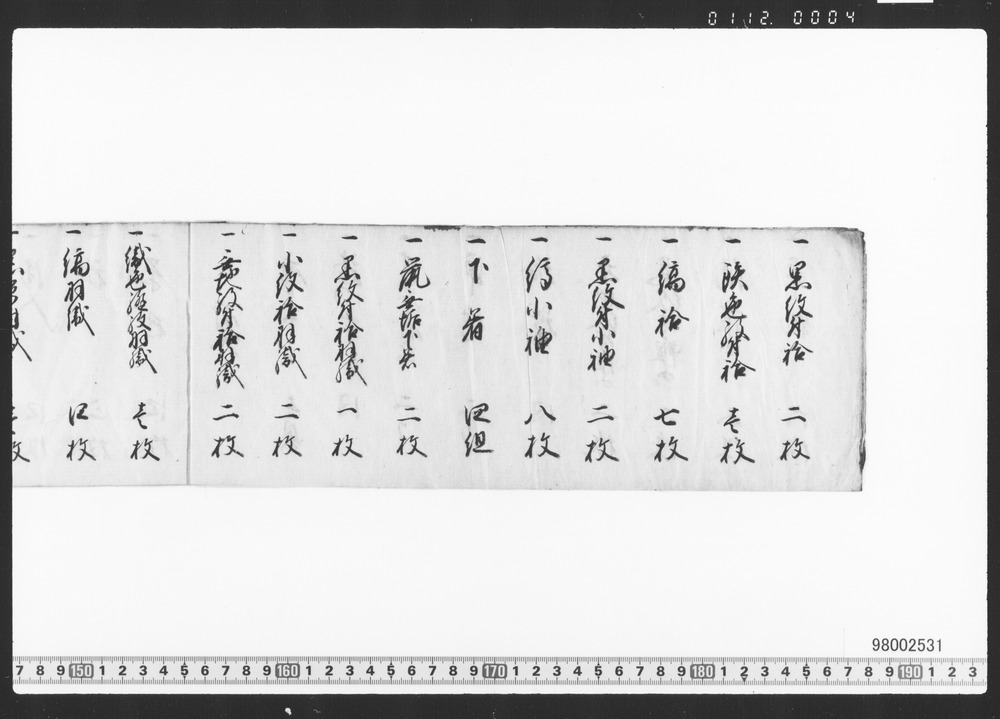 01.12. 0004
一 黒紋付袷 二枚
一 色紋付袷 壱枚
一 縞袷 七枚
一 黒紋付小袖 二枚
一 縞小袖 八枚
一 下着 四組
一 鼠無垢下着 二枚
一 黒紋付袷羽織 一枚
一 小紋袷羽織 二枚
一 紋付袷羽織 二枚
一 色羽織 壱枚
一 縞羽織 四枚
一 枚
98002531
7 8 9 150 1 2 3 4 5 6 7 8 9 160 1 2 3 4 5 6 7 8 9 170 1 2 3 4 5 6 7 8 9 180 1 2 3 4 5 6 7 8 9 190 1 2 3